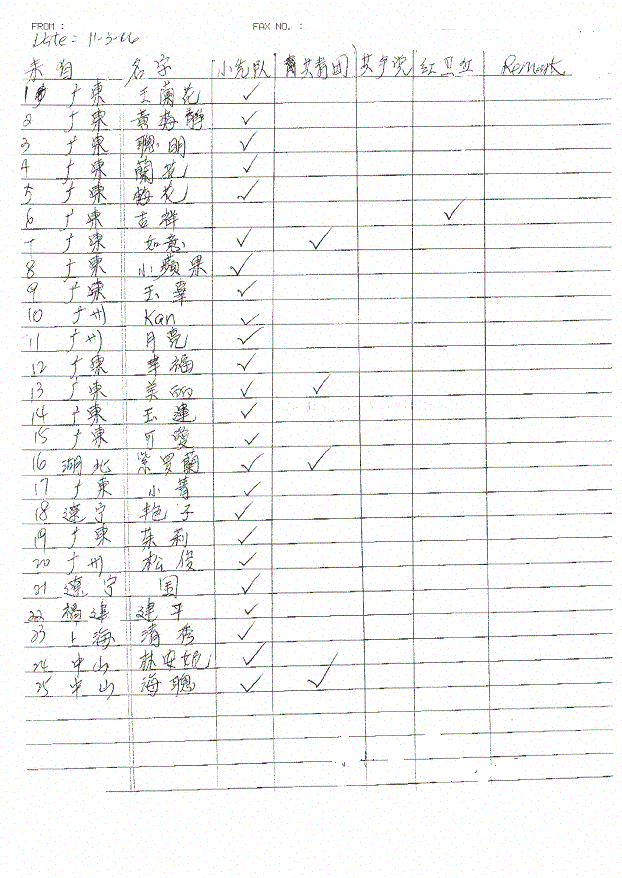 FROM :   FAX NO. :
Date: 11-3-06
来自 名字 小先队 共青团 共产党 红卫兵 Remark
1 广東 王蘭花 ✓
2 广東 黄梅静 ✓
3 广東 聰明 ✓
4 广東 蘭花 ✓
5 广東 梅花 ✓
6 广東 吉祥 ✓
7 广東 如意 ✓ ✓
8 广東 小蘋果 ✓
9 广東 玉 ✓
10 广州 Kan ✓
11 广州 月亮 ✓
12 广東 幸福 ✓
13 广東 美丽 ✓ ✓
14 广東 玉蓮 ✓
15 广東 可愛 ✓
16 湖北 紫罗蘭 ✓ ✓
17 广東 小菁 ✓
18 遼宁 艳子 ✓
19 广東 茉莉 ✓
20 广州 松俊 ✓
21 遼宁 国 ✓
22 福建 建平 ✓
23 上海 清秀 ✓
24 中山 林安妮 ✓
25 中山 海聰 ✓ ✓